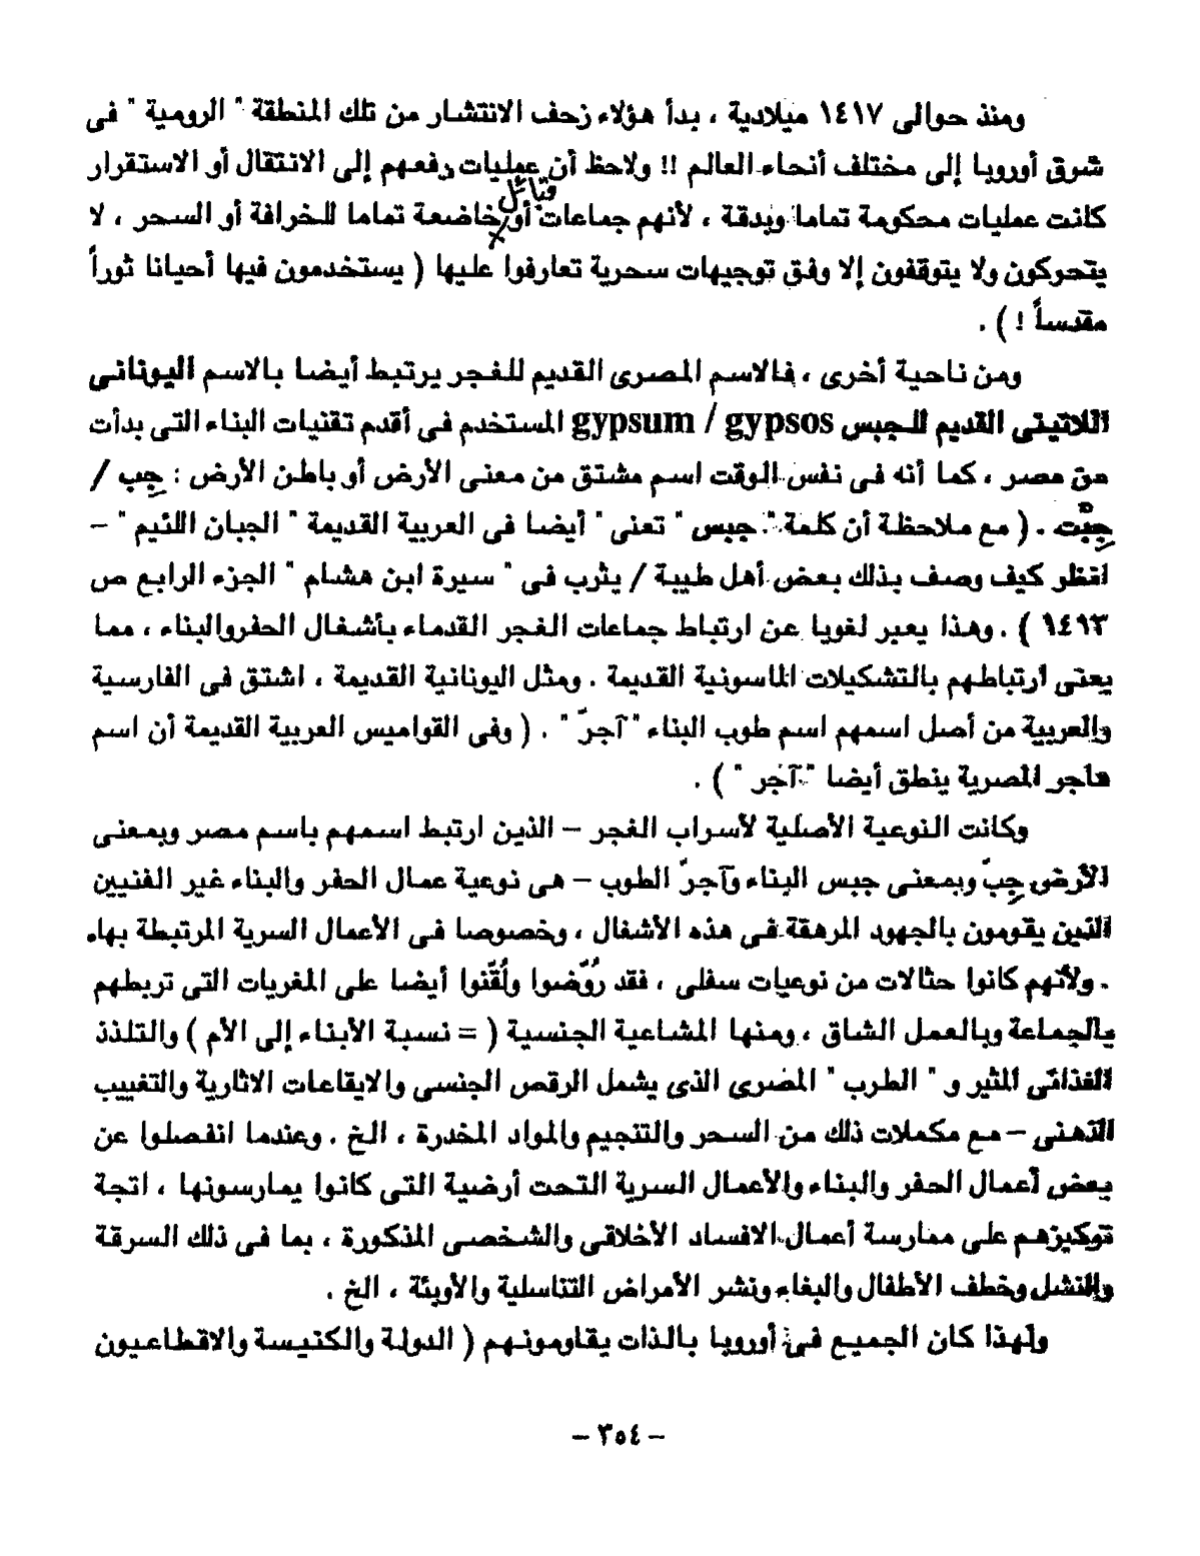 ومنذ حوالى ١٤١٧ ميلادية ، بدأ هؤلاء زحف الانتشار من تلك المنطقة " الرومية " فى
شرق أوروبا إلى مختلف أنحاء العالم !! ولاحظ أن عمليات دفعهم إلى الانتقال أو الاستقرار
قبائل
كانت عمليات محكومة تماما وبدقة ، لأنهم جماعات أو خاضعة تماما للخرافة أو السحر ، لا
يتحركون ولا يتوقفون إلا وفق توجيهات سحرية تعارفوا عليها ( يستخدمون فيها أحيانا ثوراً
مقدساً ! ) .
ومن ناحية أخرى ، فالاسم المصرى القديم للغجر يرتبط أيضا بالاسم اليونانى
اللاتينى القديم للجبس gypsum / gypsos المستخدم فى أقدم تقنيات البناء التى بدأت
من مصر ، كما أنه فى نفس الوقت اسم مشتق من معنى الأرض أو باطن الأرض : جِب /
جِبْت . ( مع ملاحظة أن كلمة " جبس " تعنى " أيضا فى العربية القديمة " الجبان اللئيم " –
انظر كيف وصف بذلك بعض أهل طيبة / يثرب فى " سيرة ابن هشام " الجزء الرابع ص
١٤٩٣ ) . وهذا يعبر لغويا عن ارتباط جماعات الغجر القدماء بأشغال الحفروالبناء ، مما
يعنى ارتباطهم بالتشكيلات الماسونية القديمة . ومثل اليونانية القديمة ، اشتق فى الفارسية
والعربية من أصل اسمهم اسم طوب البناء " آجرّ " . ( وفى القواميس العربية القديمة أن اسم
هاجر المصرية ينطق أيضا " آجر " ) .
وكانت النوعية الأصلية لأسراب الغجر – الذين ارتبط اسمهم باسم مصر وبمعنى
الأرض جِبّ وبمعنى جبس البناء وآجرّ الطوب – هى نوعية عمال الحفر والبناء غير الفنيين
الذين يقومون بالجهود المرهقة فى هذه الأشغال ، وخصوصا فى الأعمال السرية المرتبطة بها.
. ولأنهم كانوا حثالات من نوعيات سفلى ، فقد رُوّضوا ولُقّنوا أيضا على المغريات التى تربطهم
بالجماعة وبالعمل الشاق ، ومنها المشاعية الجنسية ( = نسبة الأبناء إلى الأم ) والتلذذ
الغذائى المثير و " الطرب " المصرى الذى يشمل الرقص الجنسى والايقاعات الاثارية والتغييب
الذهنى – مع مكملات ذلك من السحر والتنجيم والمواد المخدرة ، الخ . وعندما انفصلوا عن
بعض أعمال الحفر والبناء والأعمال السرية التحت أرضية التى كانوا يمارسونها ، اتجة
توكيزهم على ممارسة أعمال الافساد الأخلاقى والشخصى المذكورة ، بما فى ذلك السرقة
والنشل وخطف الأطفال والبغاء ونشر الأمراض التناسلية والأوبئة ، الخ .
ولهذا كان الجميع فى أوروبا بالذات يقاومونهم ( الدولة والكنيسة والاقطاعيون
– ٣٥٤ –